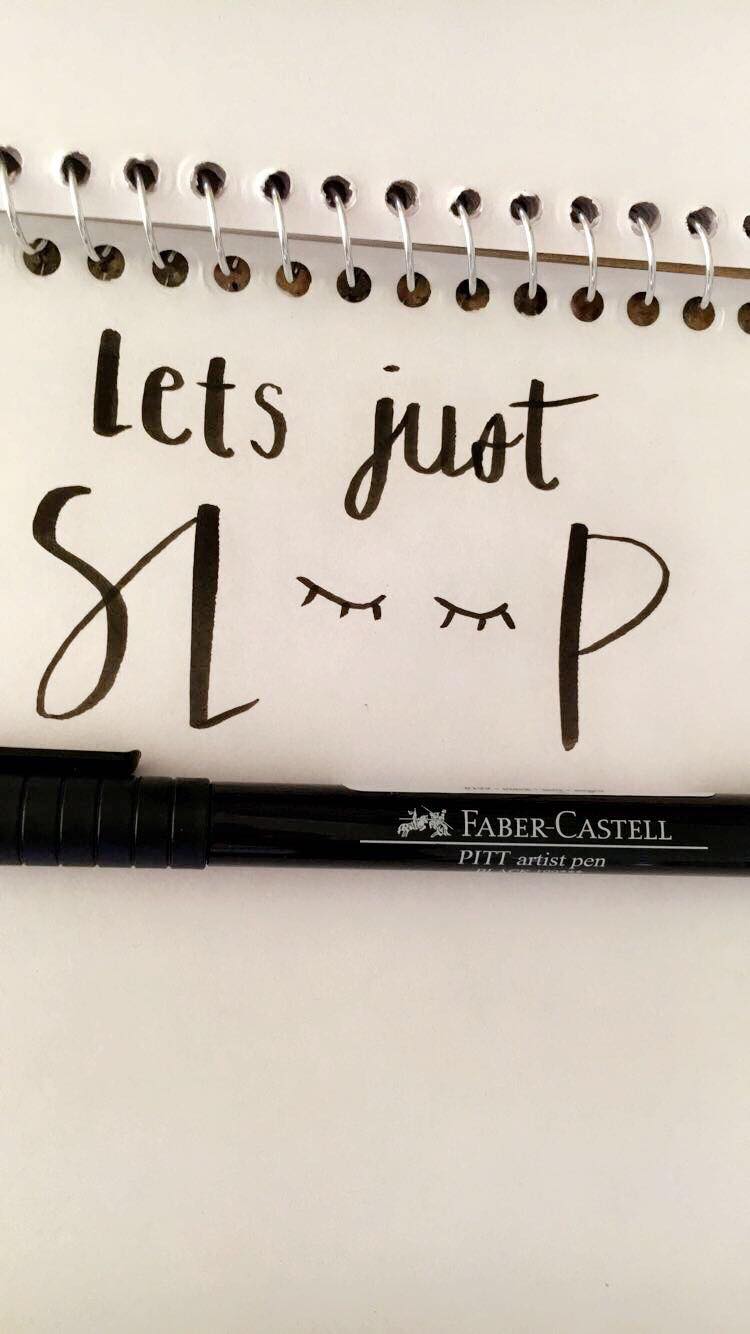 lets just
SL P
FABER-CASTELL
PITT artist pen